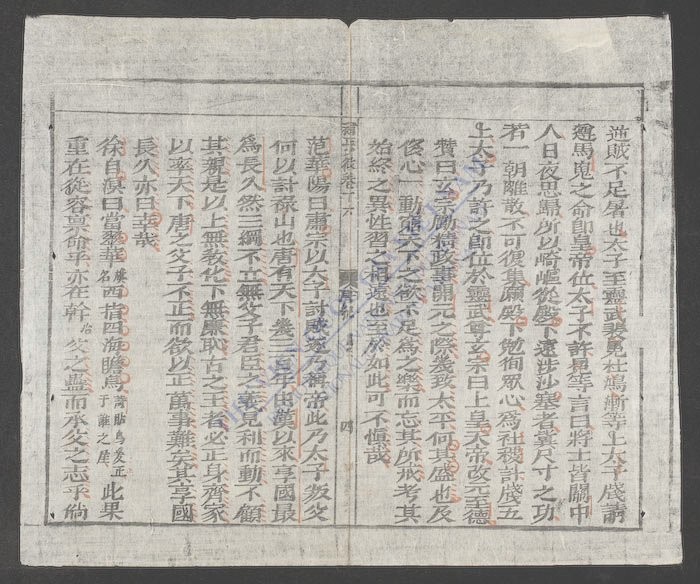 逆賊不足屠也太子至靈武裴冕杜鴻漸等上太子牋請
遵馬嵬之命即皇帝位太子不許冕等言曰將士皆關中
人日夜思歸所以崎嶇從殿下遠涉沙塞者冀尺寸之功
若一朝離散不可復集願殿下勉徇眾心為社稷計牋五
上太子乃許之即位於靈武尊玄宗曰上皇太帝改元至德
贊曰玄宗勵精政事開元之際幾致太平何其盛也及
侈心一動窮天下之欲不足為之樂而忘其所戒考其
始終之異性習之相遠也至於如此可不慎哉
范華陽曰肅宗以太子討賊遂乃稱帝此乃太子叛父
何以討祿山也唐有天下幾三百年由漢以來享國最
為長久然三綱不立無父子君臣之義見利而動不顧
其親是以上無教化下無廉恥古之王者必正身齊家
以率天下唐之父子不正而欲以正萬事難矣其享國
長久亦曰幸哉
徐自溟曰當翠華西指四海瞻烏 此果
重在從容稟命乎亦在幹父之蠱而承父之志乎倘
四